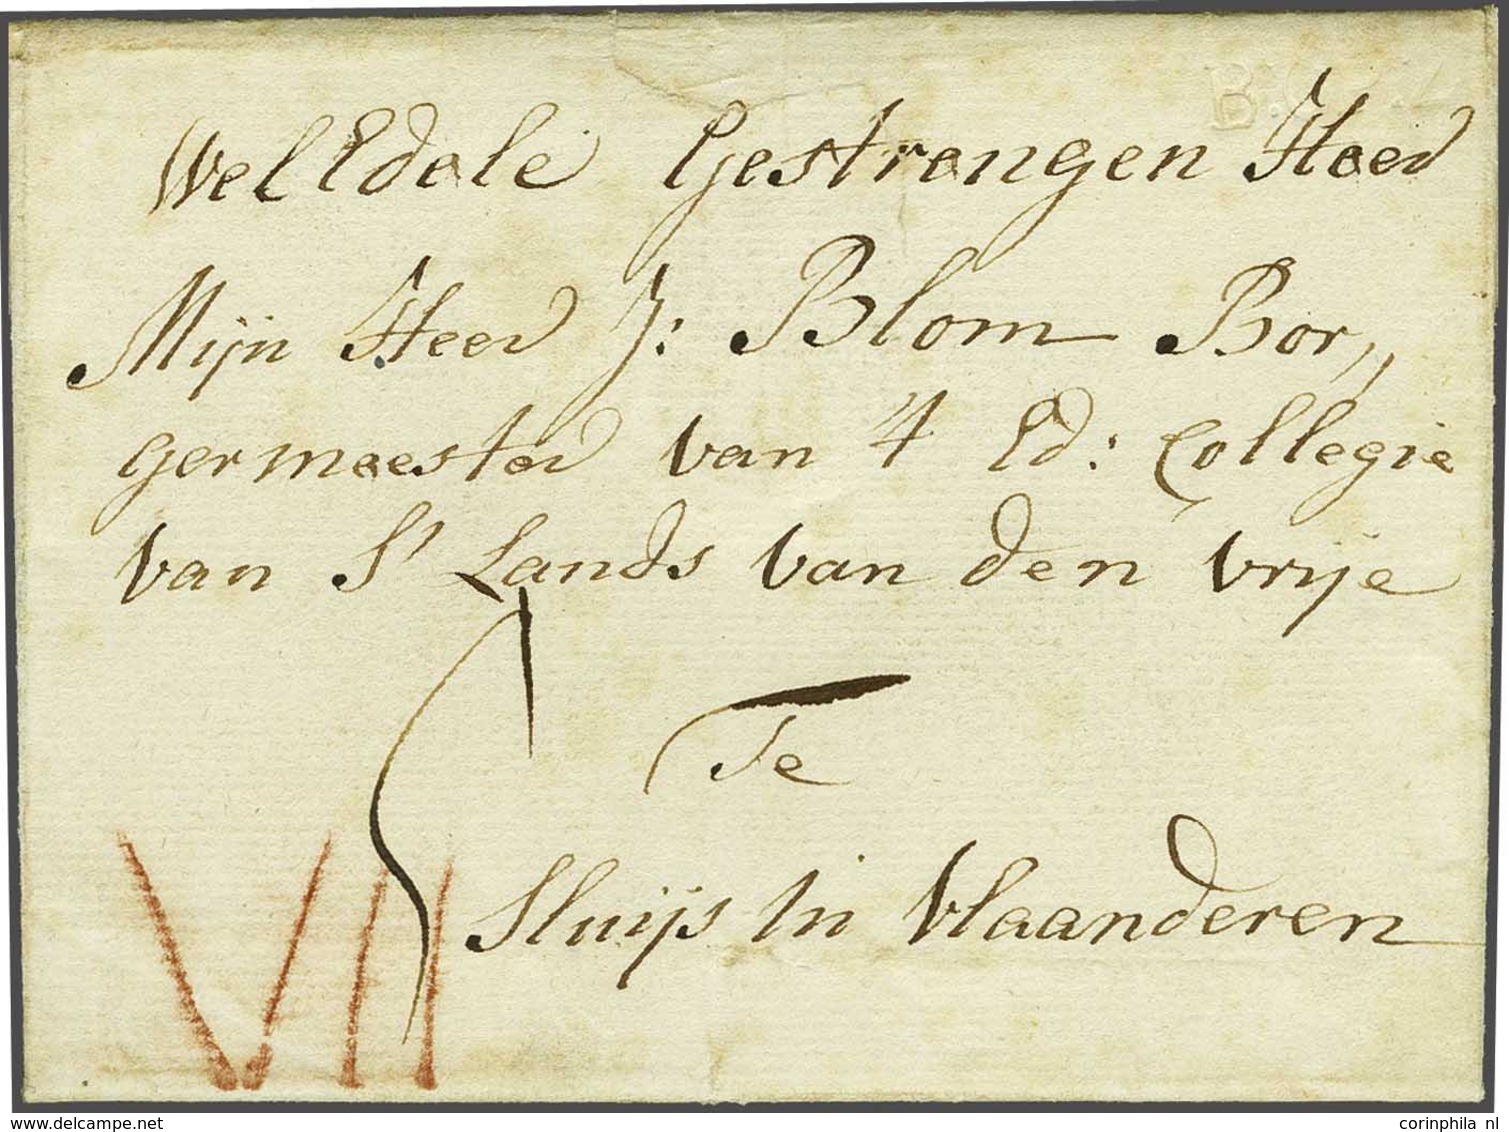 WelEdele Gestrengen Heer
Mijn Heer J: Blom Bor„
germeester van 't Ed: Collegie
van S' Lands van den Vrije
Te
Sluijs in Vlaanderen
VII
delcampe.net
corinphila nl